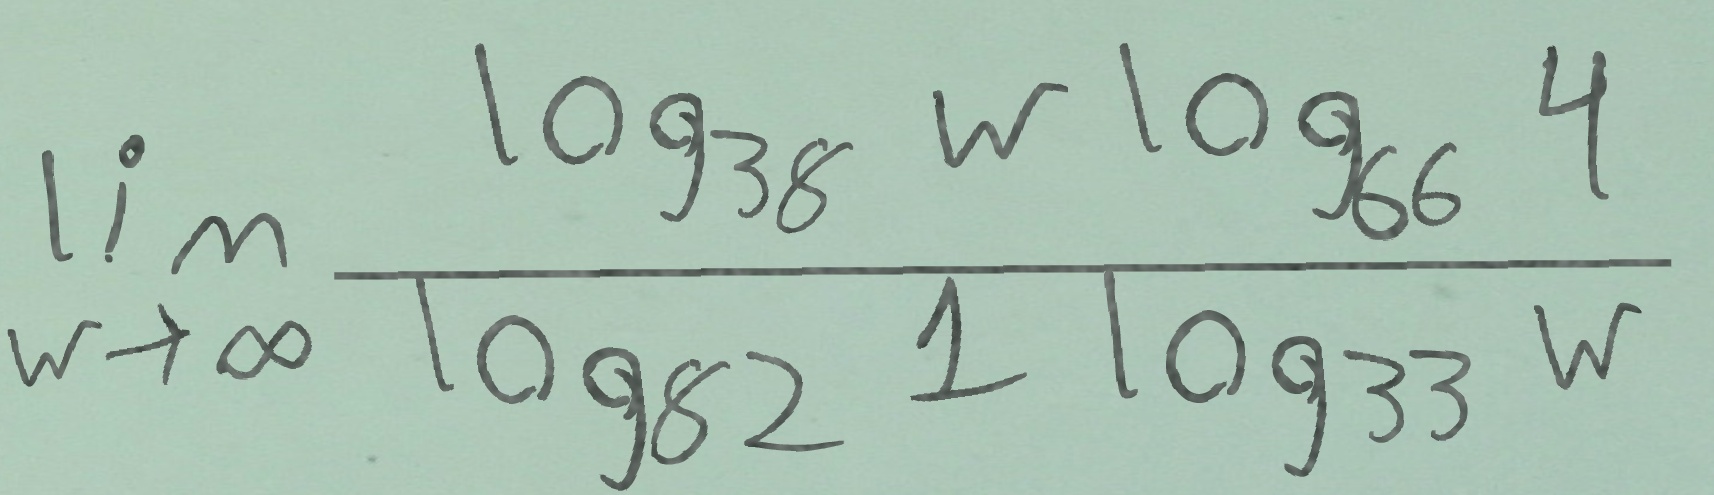 \lim_{w \to \infty} \frac{\log_{38} w \log_{66} 4}{\log_{82} 1 \log_{33} w}